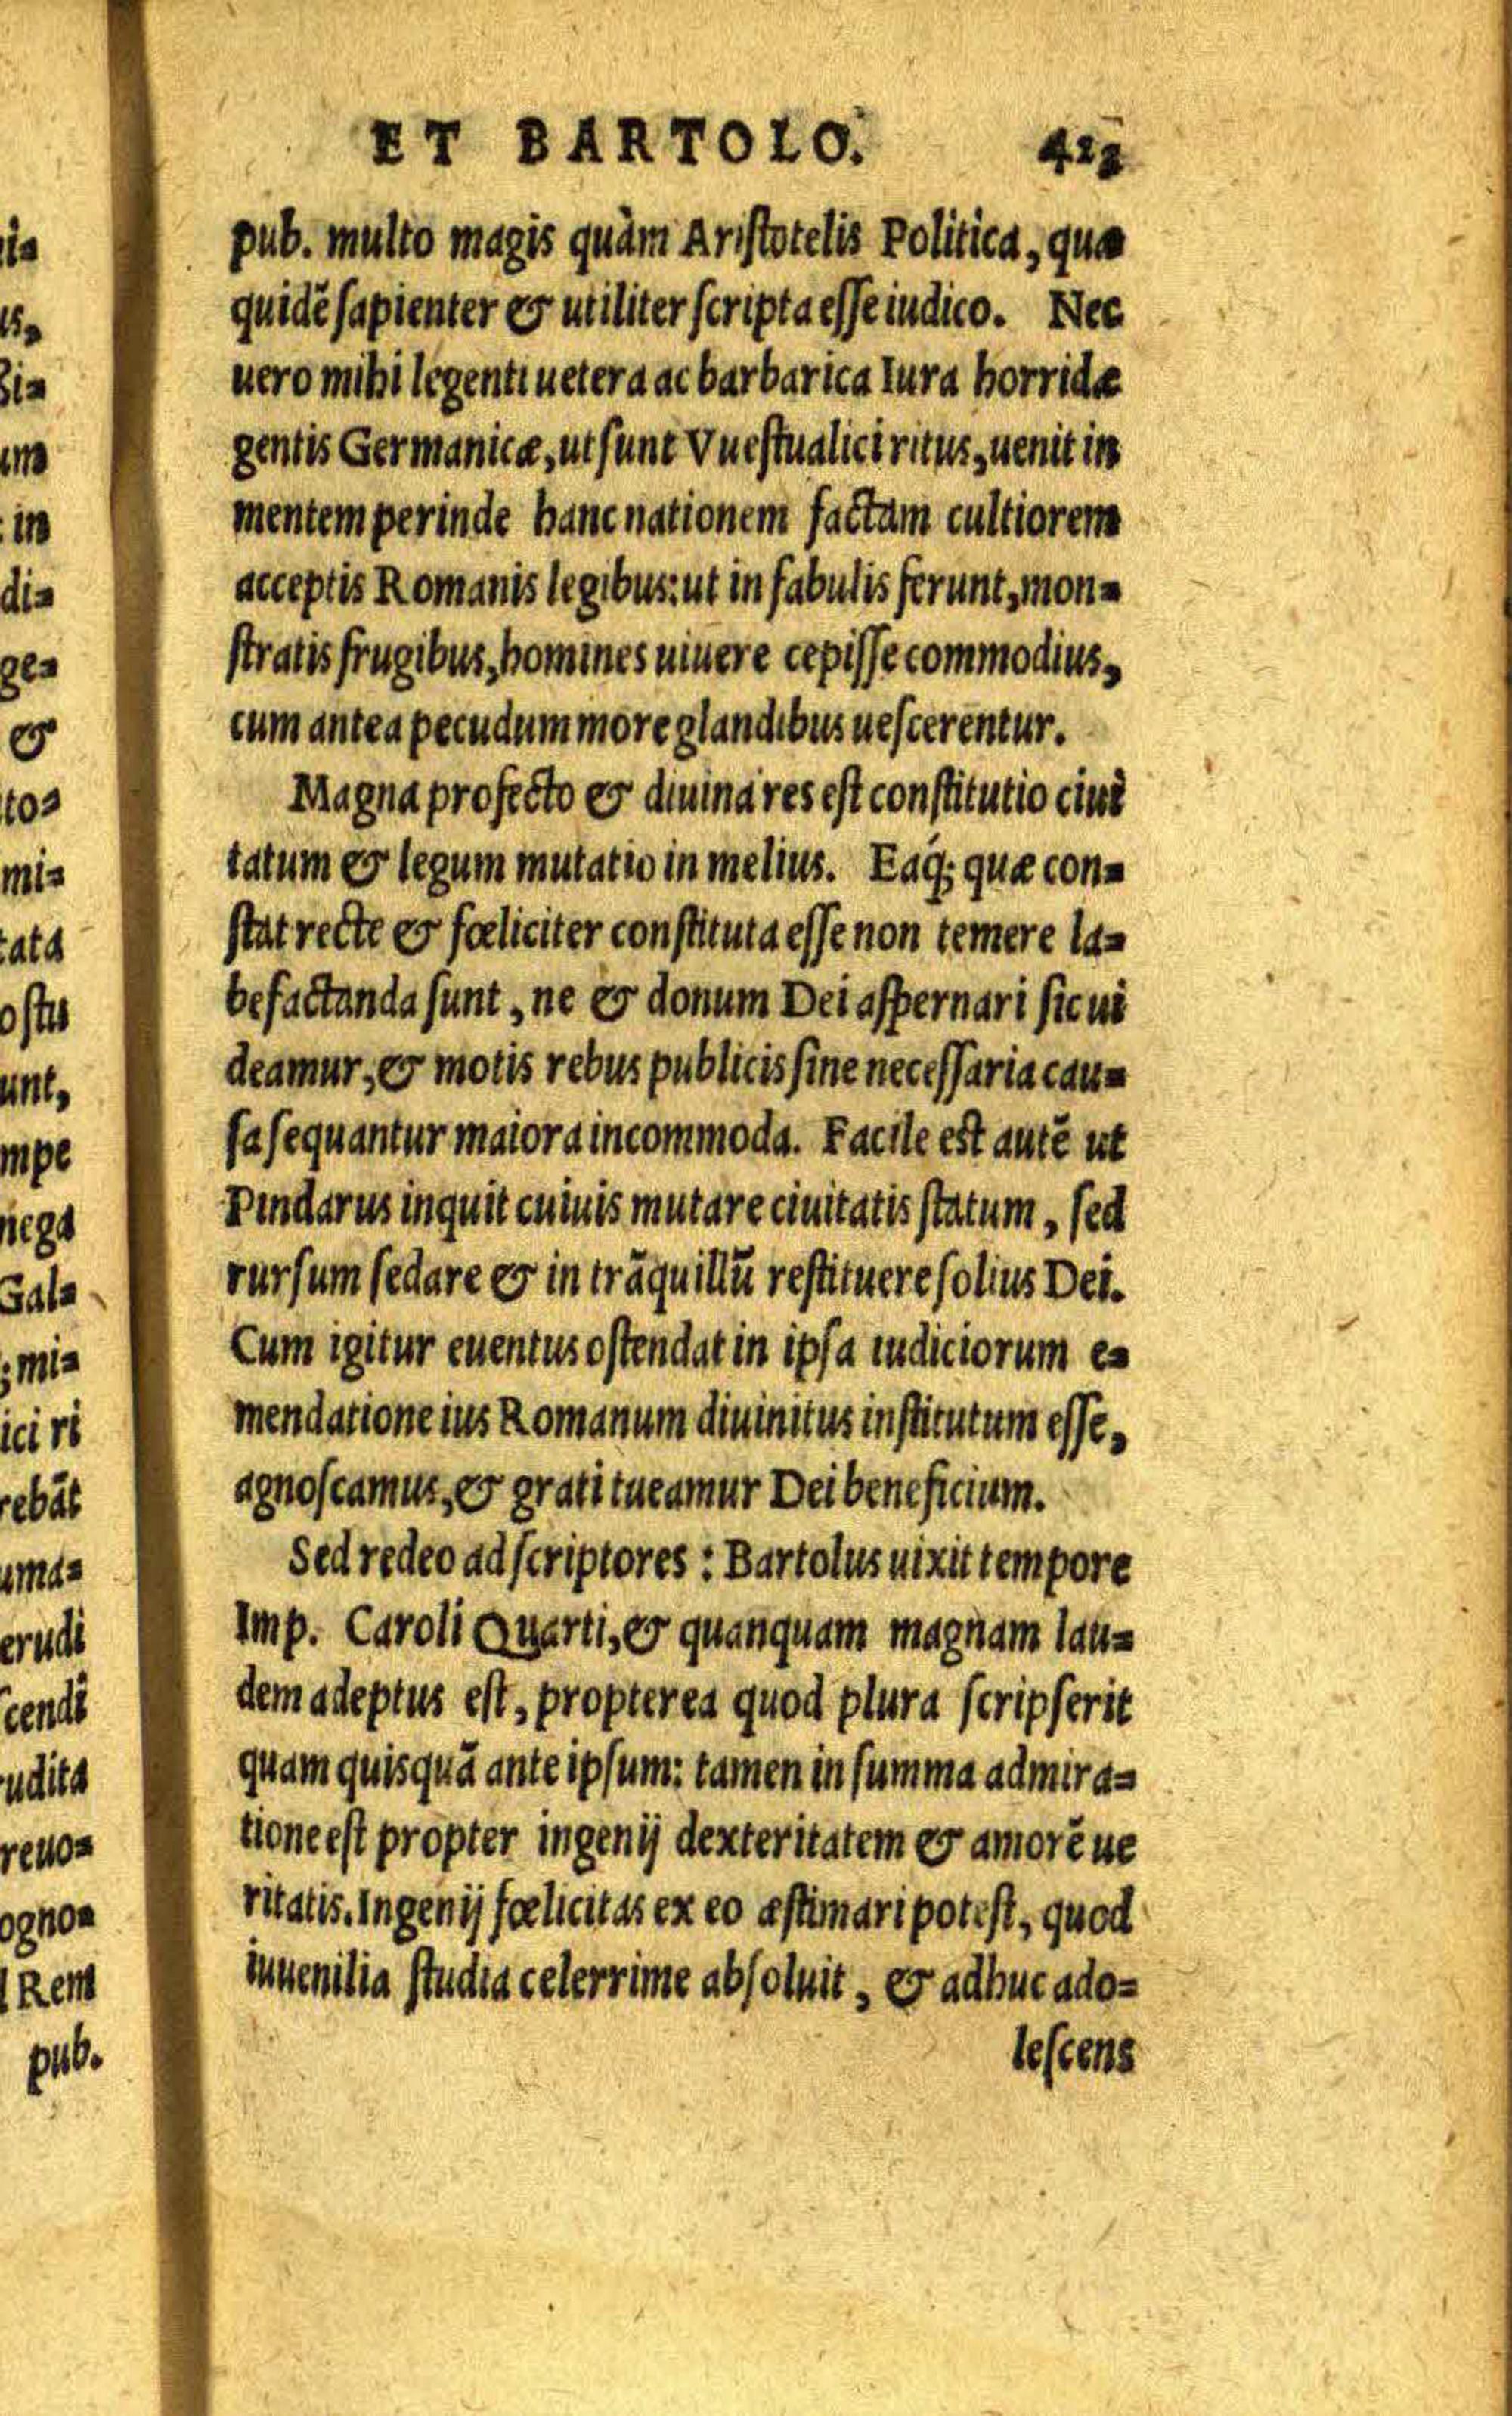 ET BARTOLO.
pub. multo magis quàm Aristotelis Politica, quæ
quidē sapienter & utiliter scripta esse iudico. Nec
uero mihi legenti uetera ac barbarica Iura horridæ
gentis Germanicæ, ut sunt Vuestualici ritus, uenit in
mentem perinde hanc nationem factam cultiorem
acceptis Romanis legibus: ut in fabulis ferunt, mon=
stratis frugibus, homines uiuere cepisse commodius,
cum antea pecudum more glandibus uescerentur.
Magna profecto & diuina res est constitutio ciui
tatum & legum mutatio in melius. Eaq́; quæ con=
stat recte & fœliciter constituta esse non temere la=
befactanda sunt, ne & donum Dei aspernari sic ui
deamur, & motis rebus publicis sine necessaria cau=
sa sequantur maiora incommoda. Facile est autē ut
Pindarus inquit cuiuis mutare ciuitatis statum, sed
rursum sedare & in trāquillū restituere solius Dei.
Cum igitur euentus ostendat in ipsa iudiciorum e=
mendatione ius Romanum diuinitus institutum esse,
agnoscamus, & grati tueamur Dei beneficium.
Sed redeo ad scriptores: Bartolus uixit tempore
Imp. Caroli Quarti, & quanquam magnam lau=
dem adeptus est, propterea quod plura scripserit
quam quisquā ante ipsum: tamen in summa admira=
tione est propter ingenij dexteritatem & amorē ue
ritatis. Ingenij fœlicitas ex eo æstimari potest, quod
iuuenilia studia celerrime absoluit, & adhuc ado=
lescens